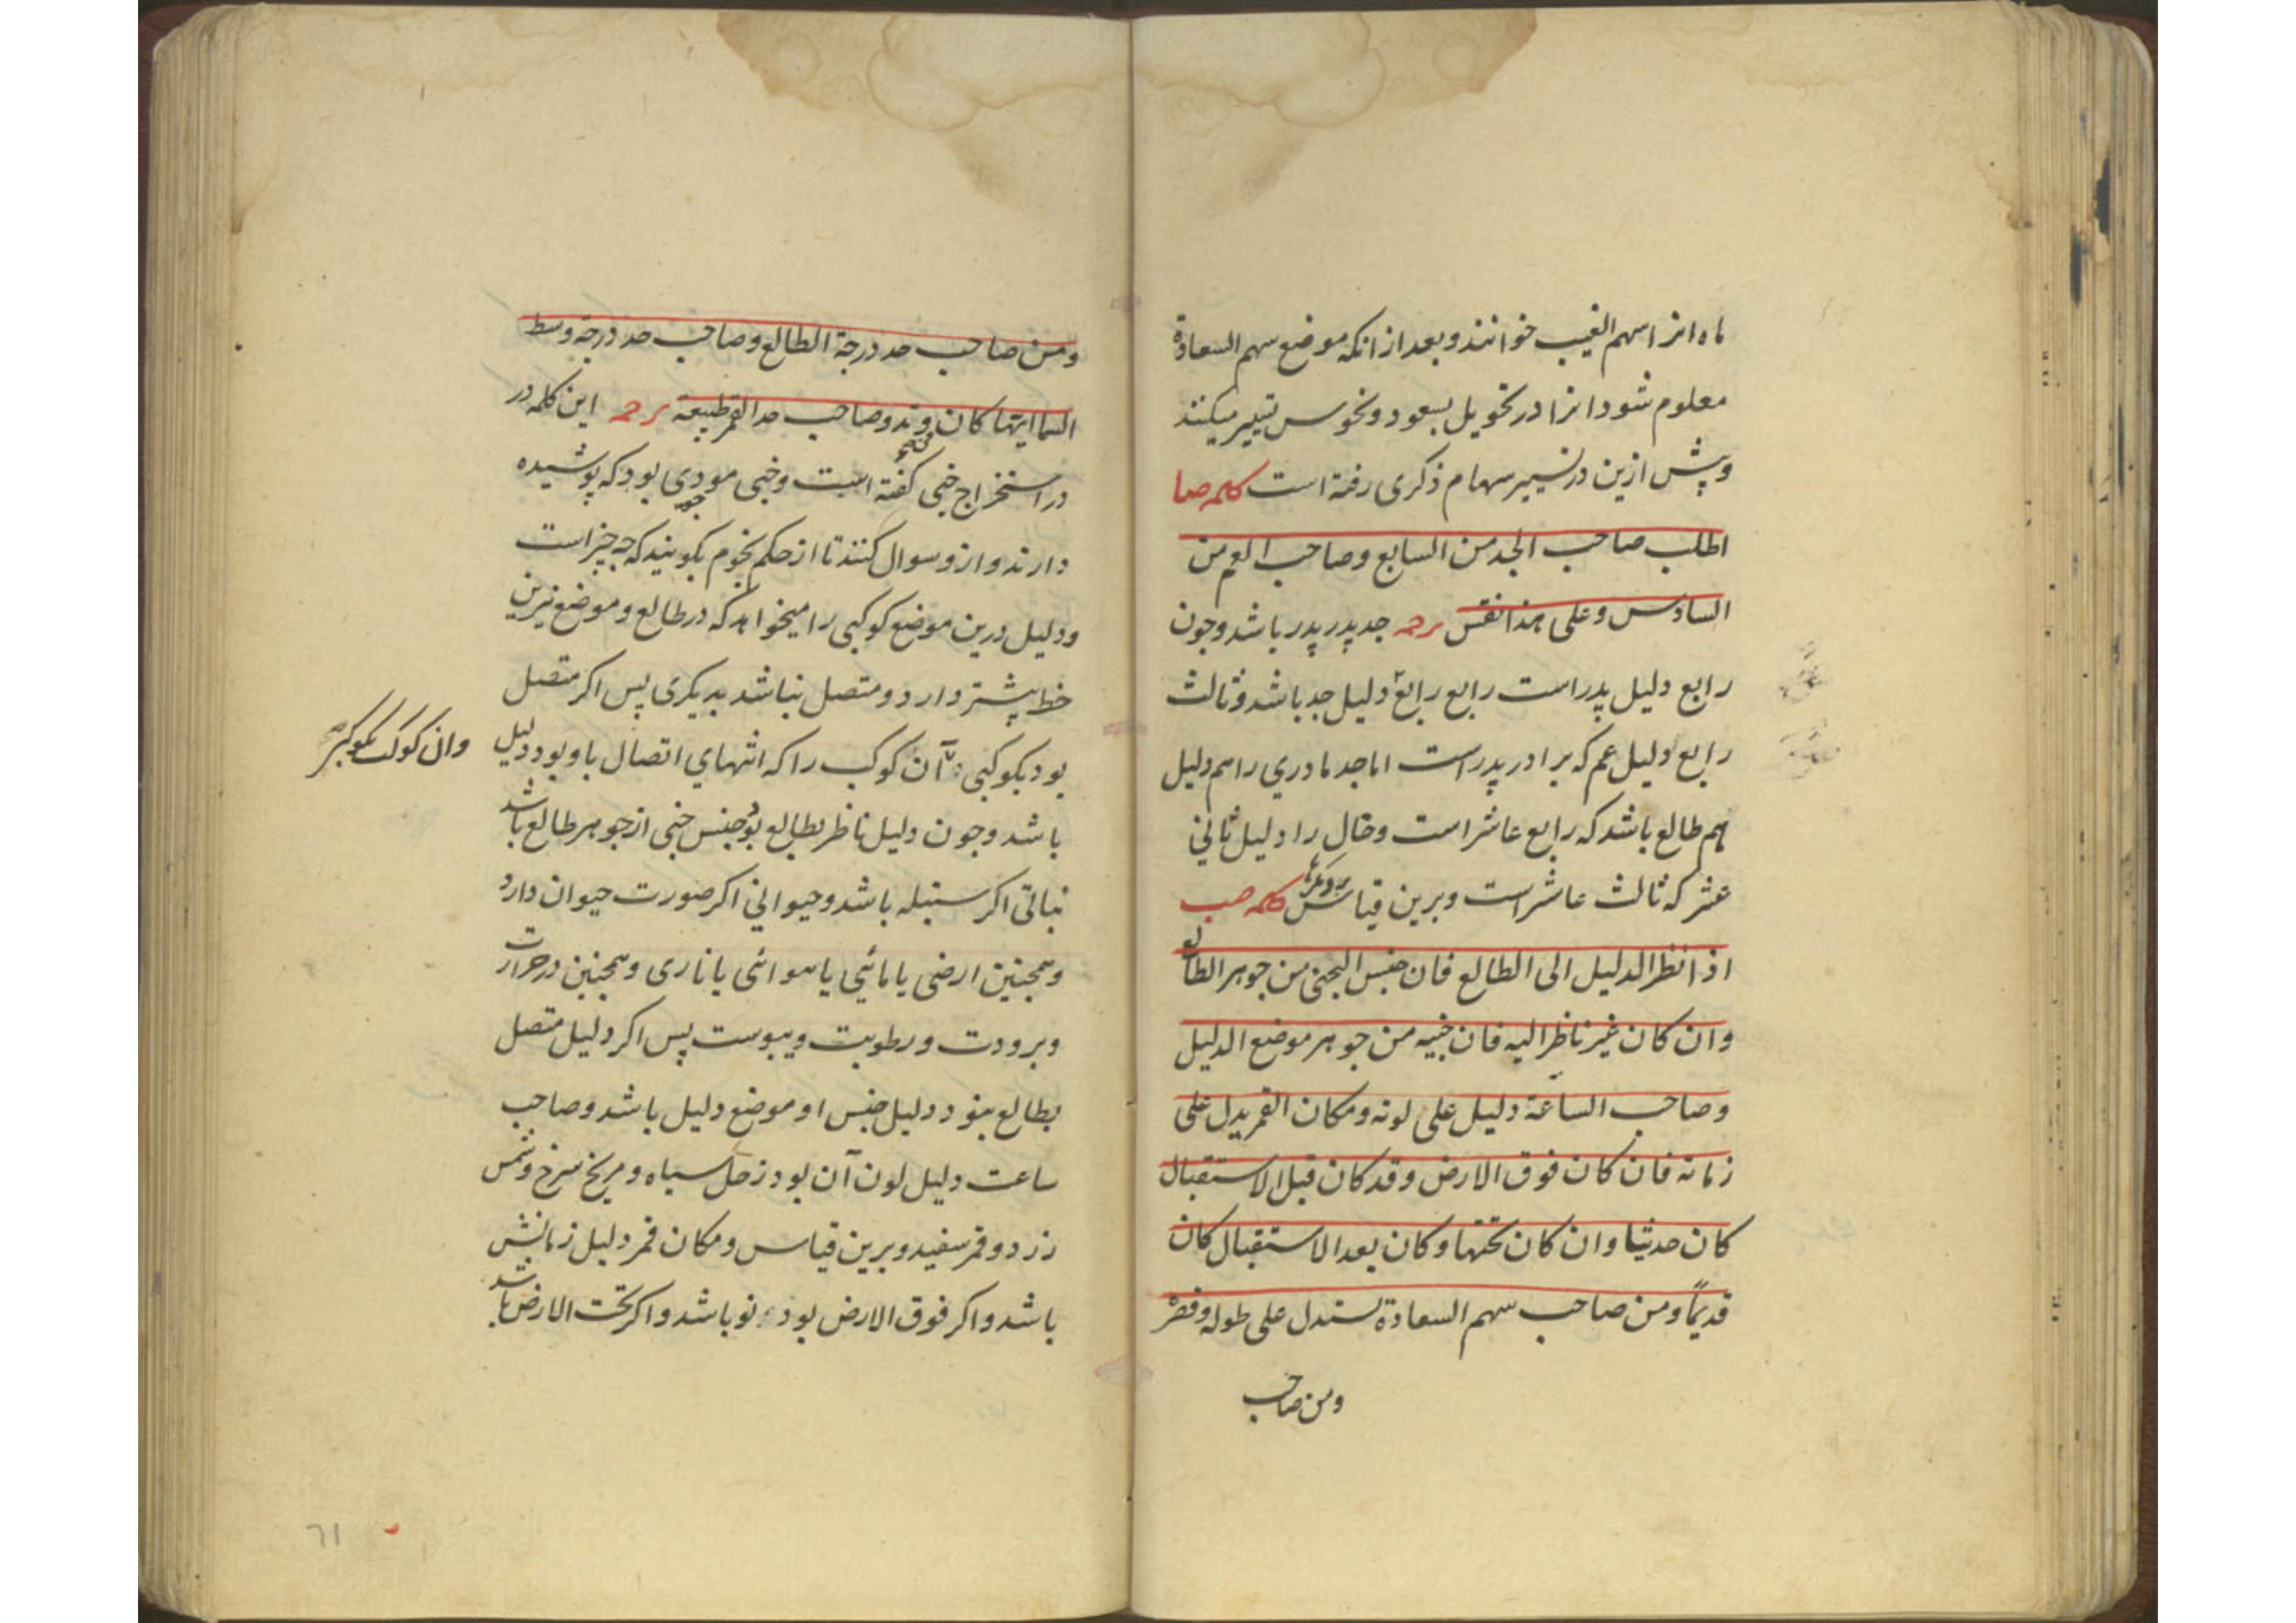 ماه انرا سهم الغیب خوانند و بعد از انکه موضع سهم السعادة
معلوم شود انرا در تحویل بسعود و نحوس تسییر میکنند
و پیش ازین در تسییر سهام ذکری رفته است کلمه صا
اطلب صاحب الجد من السابع و صاحب العم من
السادس و علی هذا نفس جد پدر پدر باشد و جون
رابع دلیل پدر است رابع رابع دلیل جد باشد و ثالث
رابع دلیل عم که برادر پدر است اما جد مادری را هم دلیل
هم طالع باشد که رابع عاشر است و خال را دلیل ثانی
عشر که ثالث عاشر است و برین قیاس کلمه صب
اذا نظر الدلیل الی الطالع فان جنس الخبی من جوهر الطالع
و ان کان غیر ناظر الیه فان خبیه من جوهر موضع الدلیل
و صاحب الساعة دلیل علی لونه و مکان القمر یدل علی
زمانه فان کان فوق الارض و قد کان قبل الاستقبال
کان حدیثا و ان کان تحتها و کان بعد الاستقبال کان
قدیماً و من صاحب سهم السعادة یستدل علی طوله و قصره
و من صاحب
و من صاحب حد درجة الطالع و صاحب حد درجة وسط
السما ایتها کان وتد و صاحب حد القمر طبیعة این کلمه در
در استخراج خبی گفته است و خبی بود که پوشیده
دارند و ازو سوال کنند تا از حکم نجوم بکویند که چه چیز است
و دلیل درین موضع کوکبی را میخواهد که در طالع و موضع نیرین
حظ بیشتر دارد و متصل نباشد بدیکری پس اکر متصل
بود بکوکبی آن کوکب را که انتهای اتصال باو بود دلیل
وان کوکب بکوکب
باشد و جون دلیل ناظر بطالع بود جنس خبی از جوهر طالع باشد
نباتی اکر سنبله باشد و حیوانی اکر صورت حیوان دارد
و همجنین ارضی یا مائی یا هوائی یا ناری و همجنین در حرارت
و برودت و رطوبت و یبوست پس اکر دلیل متصل
بطالع نبود دلیل جنس او موضع دلیل باشد و صاحب
ساعت دلیل لون آن بود زحل سیاه و مریخ سرخ و شمس
زرد و قمر سفید و برین قیاس و مکان قمر دلیل زمانش
باشد و اکر فوق الارض بود نو باشد و اکر تحت الارض باشد
٦١